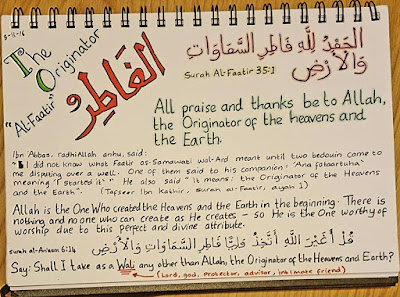 3-11-16
The Originator
"Al-Faatir"
الفاطر
الْحَمْدُ لِلَّهِ فَاطِرِ السَّمَاوَاتِ
وَالْأَرْضِ
Surah Al-Faatir 35:1
All praise and thanks be to Allah,
the Originator of the heavens and
the Earth.
Ibn 'Abbas, radhiAllah anhu, said:
"I did not know what Faatir os-Samawati wal-Ard meant until two bedouin came to
me disputing over a well. One of them said to his companion: 'Ana fataartuha'
meaning 'I started it'." He also said "It means: the Originator of the Heavens
and the Earth". (Tafseer Ibn Kathir, surah al-Faatir, ayah 1)
Allah is the One Who created the Heavens and the Earth in the beginning. There is
nothing and no one who can create as He creates - so He is the One worthy of
worship due to this perfect and divine attribute.
surah al-An'aam 6:14
قُلْ أَغَيْرَ اللَّهِ أَتَّخِذُ وَلِيًّا فَاطِرِ السَّمَاوَاتِ وَالْأَرْضِ
Say: Shall I take as a Wali any other than Allah, the Originator of the Heavens and Earth?
(Lord, god, protector, advisor, intimate friend)